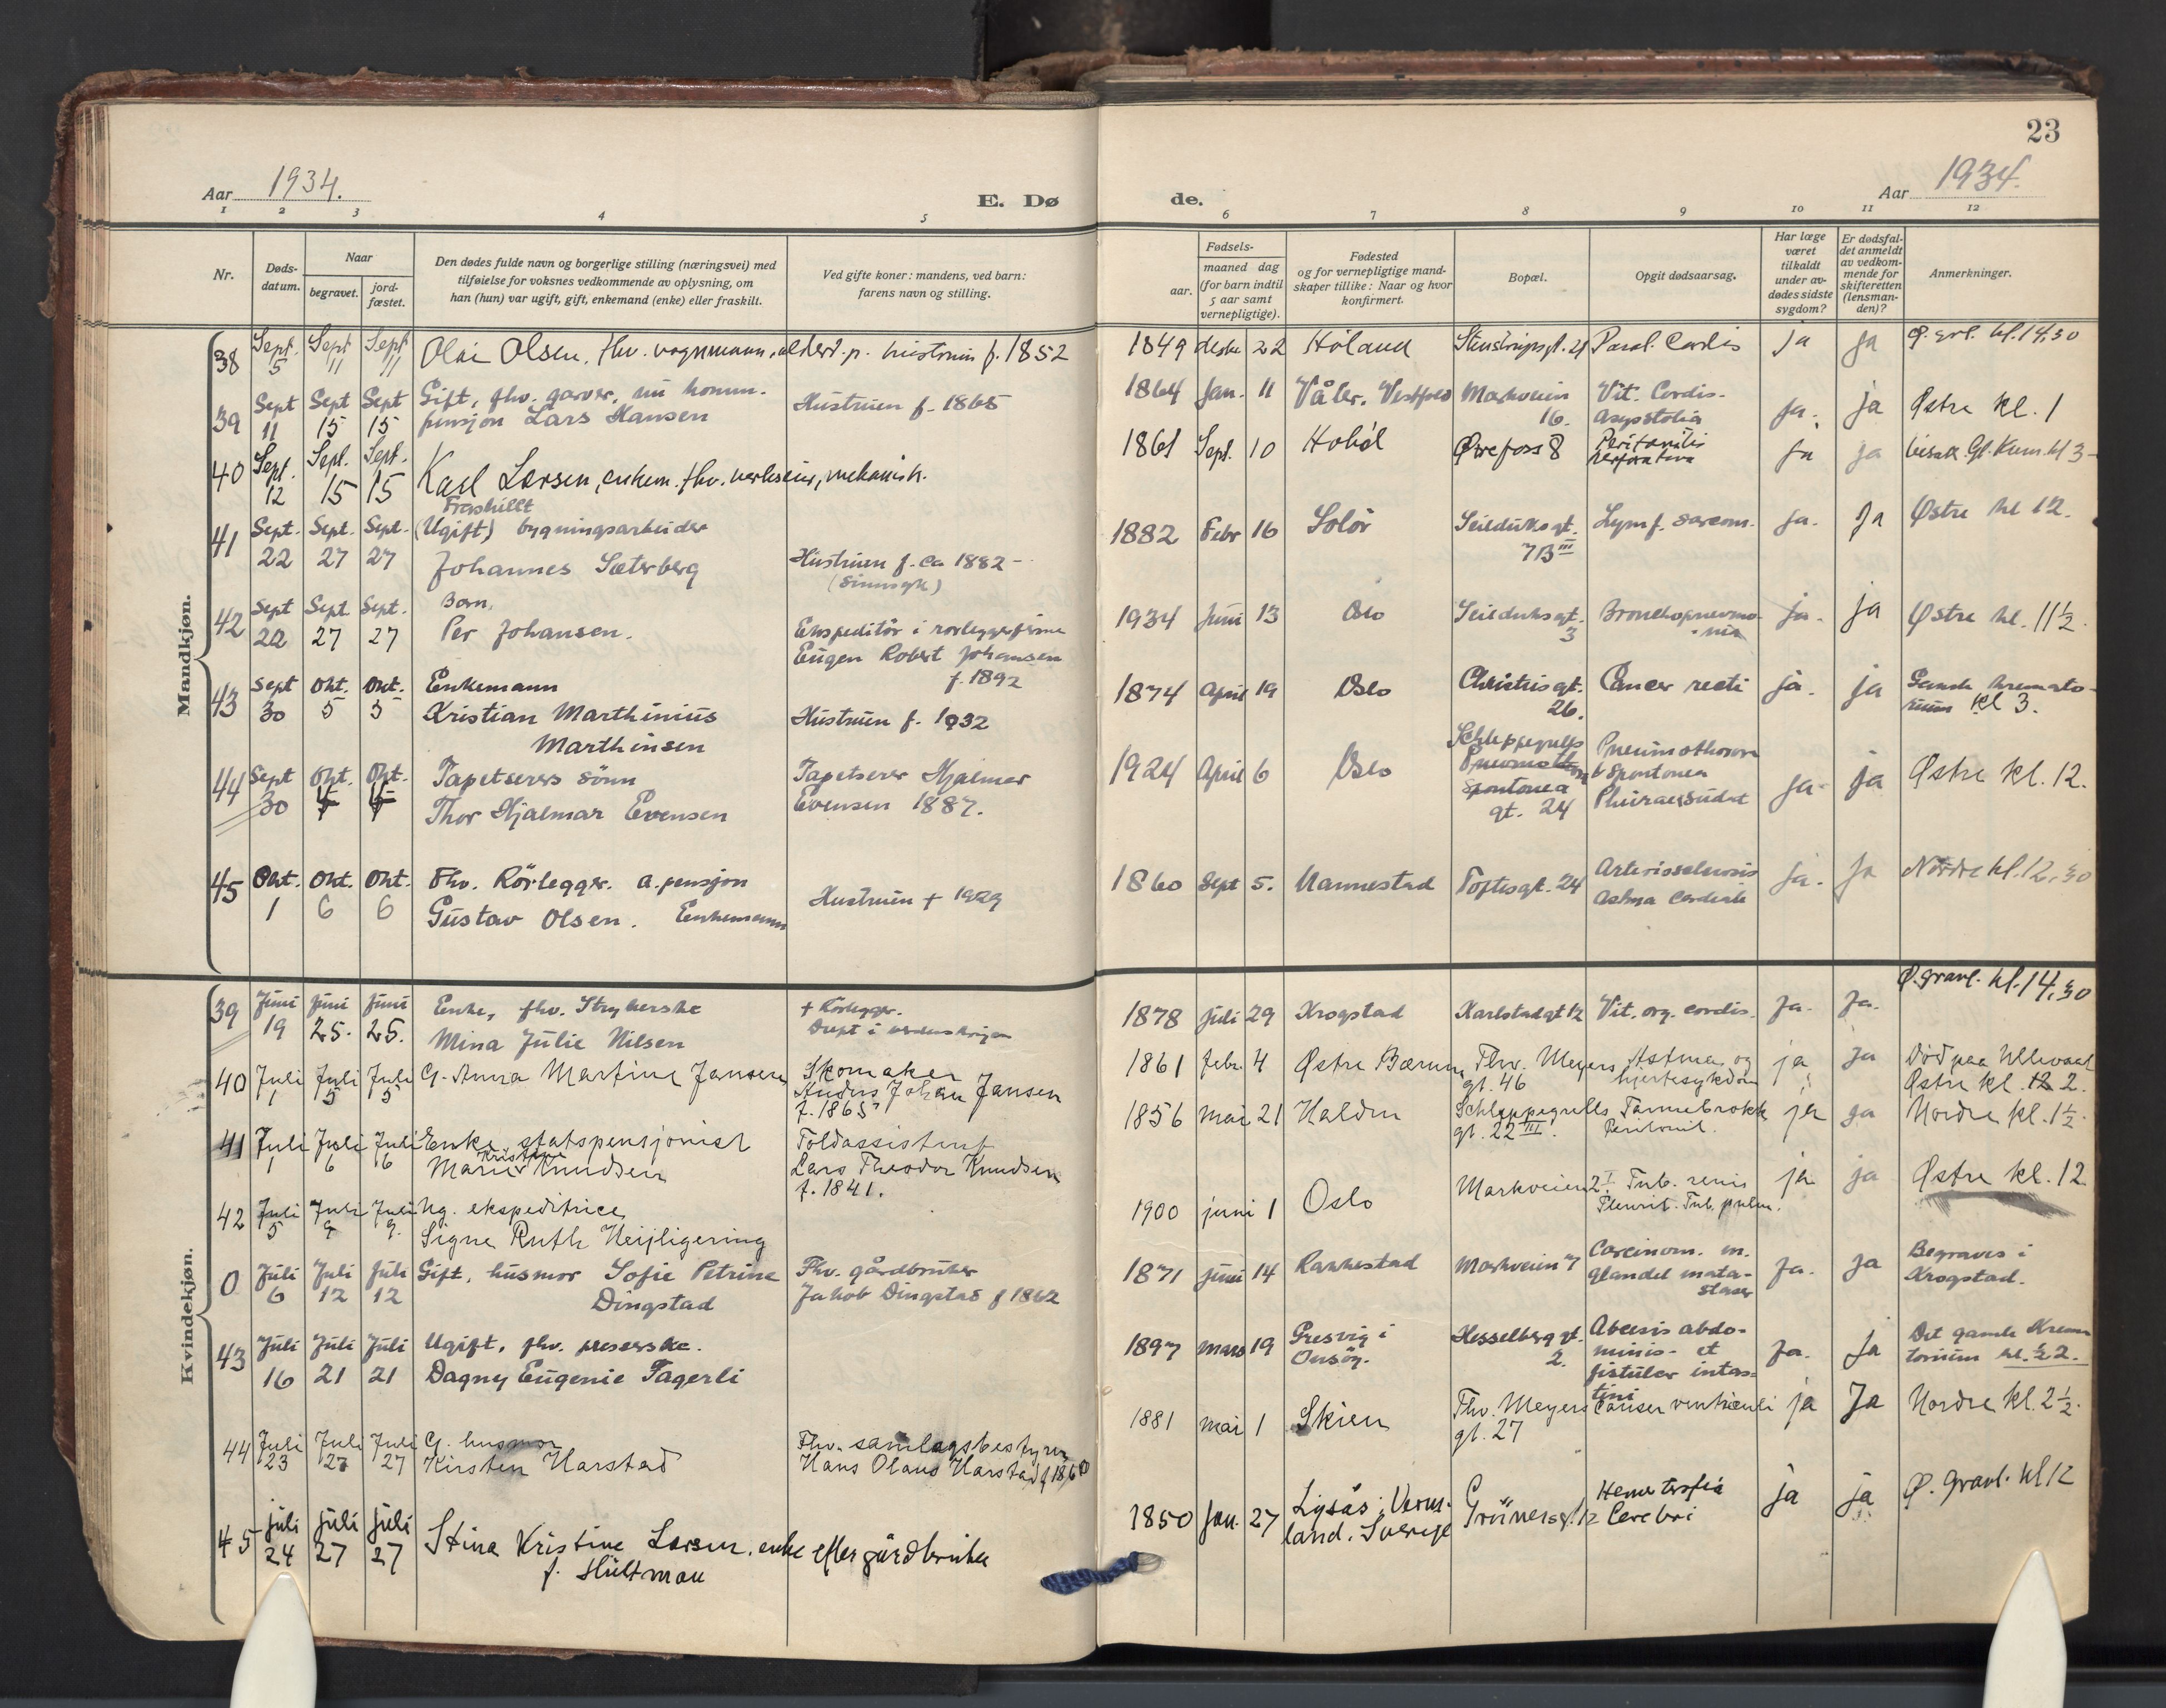 23
Aar 1934.
E. Dø
de.
Aar 1934.
1 2 3 4 5 6 7 8 9 10 11 12
Nr.
Døds-
datum.
Naar
begravet.
jord-
fæstet.
Den dødes fulde navn og borgerlige stilling (næringsvei) med
tilføielse for voksnes vedkommende av oplysning, om
han (hun) var ugift, gift, enkemand (enke) eller fraskilt.
Ved gifte koner: mandens, ved barn:
farens navn og stilling.
Fødsels-
aar.
maaned dag
(for barn indtil
5 aar samt
vernepligtige).
Fødested
og for vernepligtige mand-
skaper tillike: Naar og hvor
konfirmert.
Bopæl.
Opgit dødsaarsag.
Har læge
været
tilkaldt
under av-
dødes sidste
sygdom?
Er dødsfal-
det anmeldt
av vedkom-
mende for
skifteretten
(lensman-
den)?
Anmerkninger.
Mandkjøn.
38 Sept. 5 Sept 11 Sept 11 Olai Olsen, fhv. vognmann, hustruen f. 1852 1849 22 Höland Paral. Cordis ja ja kl. 14,30
39 Sept 11 Sept 15 Sept 15 Gift, fhv. garver, nu komm.
pensjon Lars Hansen
Hustruen f. 1865
1864 Jan. 11 Våler. Vestfold Markveien
16.
Vit. Cordis.
Asystolia
ja. ja Østre kl. 1
40 Sept. 12 Sept. 15 Sept. 15 Karl Larsen, enkem. fhv. verkseier, mekanisk.
1861 Sept. 10 Hobøl Ørefoss 8 Peritonitis
perforativa
ja ja Krem. kl 3
41 Sept. 22 Sept. 27 Sept. 27 Fraskillt
(Ugift) bygningsarbeider
Johannes Sæterberg
Hustruen f. ca 1882 -
(Sinnsyk)
1882 Febr 16 Solör Seilduksgt.
7B III
Lymf. sarcom. ja. ja Østre kl 12.
42 Sept 22 Sept 27 Sept. 27 Barn,
Per Johansen.
Ekspeditör i rørleggerfirma
Eugen Robert Johansen
f. 1892
1934 Juni 13 Oslo Seilduksgt.
3
Bronchopneumo-
nia
ja. ja Østre kl. 11½
43 Sept 30 Okt. 5 Okt. 5 Enkemann
Kristian Marthinius
Marthinsen
Hustruen f. 1932
1874 April 19 Oslo Christiesgt.
26.
Cancer recti ja. ja Gamle kremato-
rium kl 3.
44 Sept 30 Okt. Okt. Tapetserers sönn
Thor Hjalmar Evensen
Tapetserer Hjalmar
Evensen 1887.
1924 April 6 Oslo Schleppegrells
Spontonea
gt. 24
Pneumothorax
Spontonea
Pleuraexsudat
ja. ja Østre kl. 12.
45 Okt. 1 Okt. 6 Okt. 6 Fhv. Rörlegger. a. pensjon
Gustav Olsen. Enkemann
Hustruen † 1929
1860 Sept 5. Nannestad Toftesgt. 24 Arteriosclerosis
Astma Cordiale
ja. ja Nordre kl. 12,30
Kvindekjøn.
39 Juni 19 Juni 25. Juni 25. Enke, fhv. Strykerske
Mina Julie Nilsen
† Rörlegger.
Drept i verdenskrigen
1878 juli 29 Krogstad Karlstadgt 12 Vit. org. cordis. ja. ja. Ø. gravl. kl. 14,30
40 Juli 1 Juli 5 Juli 5 G. Anna Martine Jansen
Skomaker
Anders Johan Jansen
f. 1865
1861 febr. 4 Østre Bærum Thv. Meyers
gt. 46
Astma og
hjertesykdom
ja ja Död paa Ullevaal
Østre kl. 2.
41 Juli 1 Juli 6 Juli 6 Enke, statspensjonist
Kristine
Marie Knudsen
Toldassistent
Lars Theodor Knudsen
f. 1841.
1856 mai 21 Halden Schleppegrells
gt. 22 III.
Tarmebrokk
Peritonit.
ja ja Nordre kl. 1½.
42 Juli 5 Juli 9 Juli 9. Ug. ekspeditrice
Signe Ruth Heijligering
1900 juni 1 Oslo Markveien 2 I Tub. renis
Pleurit. Tub. pulm.
ja ja Østre kl. 12
0 Juli 6 Juli 12 Juli 12 Gift, husmor Sofie Petrine
Dingstad
Fhv. gårdbruker
Jakob Dingstad f 1862
1871 juni 14 Rakkestad Markveien 7 Carcinom. m.
glandel mata-
staser
ja. ja Begraves i
Krogstad.
43 Juli 16 Juli 21 Juli 21 Ugift, fhv. preserske.
Dagny Eugenie Fagerli
1897 mars 19 Presvig i
Onsöy.
Hesselberg gt.
2.
Abcesis abdo-
minis - et
fistuler intes-
tini
ja. ja Det gamle Krema-
torium kl. ½2.
44 Juli 23 Juli 27 Juli 27 G. husmor
Kirsten Harstad
Fhv. samlagsbestyrer
Hans Olaus Harstad f 1860
1881 mai 1 Skien Thv. Meyers
gt. 27
Canser ventriculi ja Ja Nordre kl. 2½.
45 juli 24 juli 27 juli 27 Stina Kristine Larsen, enke efter gårdbruker
f. Hultman
1850 Jan. 27 Lysås; Verm-
land. Sverige
Grünersgt. 12
Cerebri
ja ja Ø. gravl. kl 12